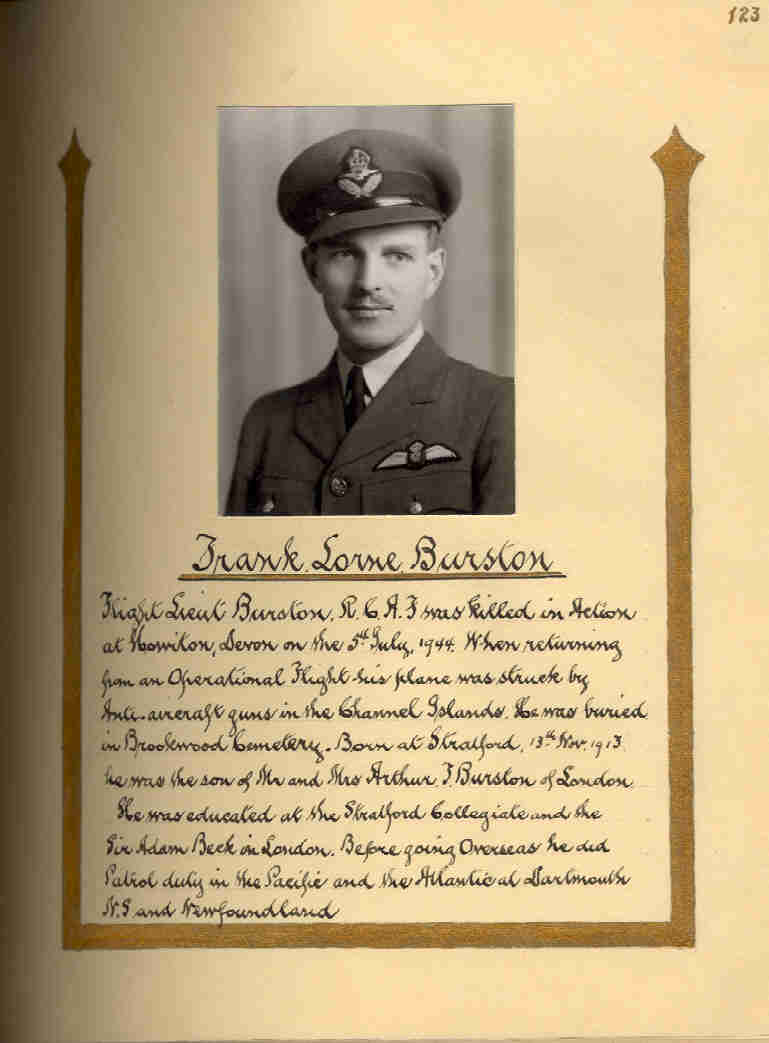 123
Frank Lorne Burston
Flight Lieut Burston, R.C.A.F was killed in Action
at Howiton, Devon on the 5th July, 1944. When returning
from an Operational Flight his plane was struck by
Anti-aircraft guns in the Channel Islands. He was buried
in Brookwood Cemetery. Born at Stratford, 13th Nov. 1913
he was the son of Mr and Mrs Arthur F. Burston of London.
He was educated at the Stratford Collegiate and the
Sir Adam Beck in London. Before going Overseas he did
Patrol duty in the Pacific and the Atlantic at Dartmouth
N.S and Newfoundland